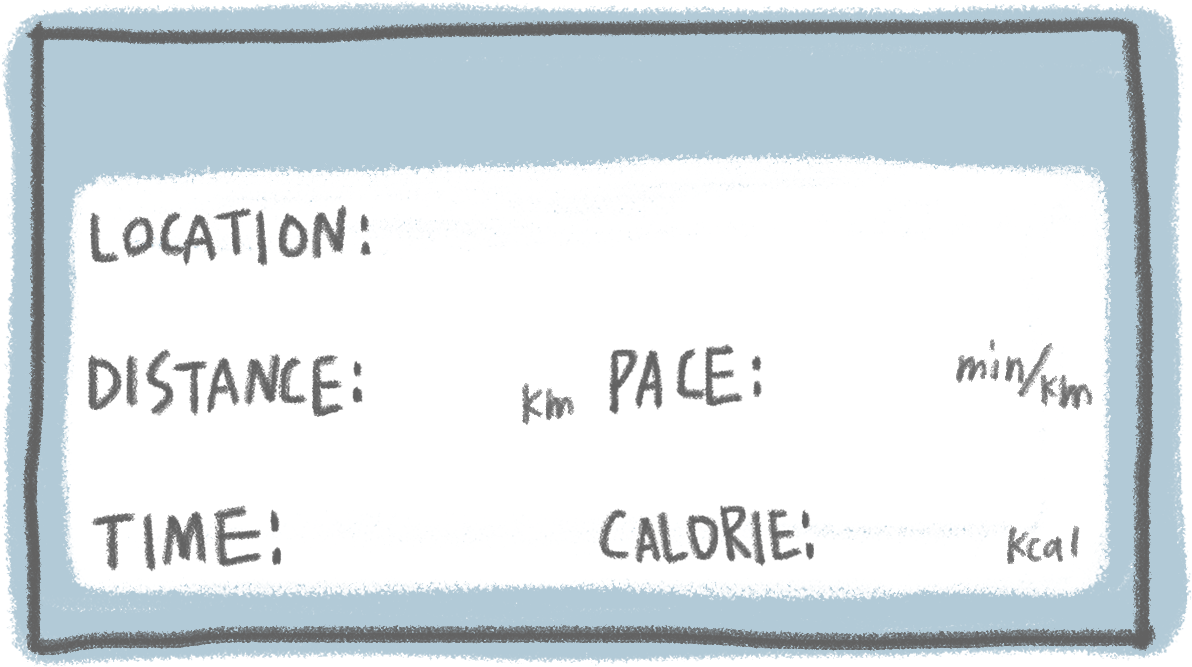 LOCATION:
DISTANCE: km PACE: min/km
TIME: CALORIE: kcal